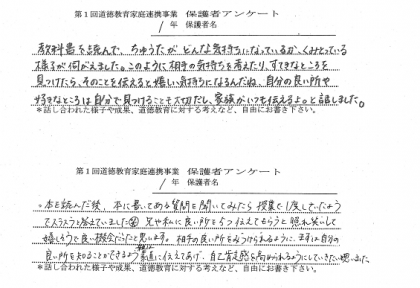 第1回道徳教育家庭連携事業 保護者アンケート
1年 保護者名
教科書を読んで、ちゅうたが どんな気持ちになっているか、くみとっている
様子が伺がえました。このように相手の気持ちを考えたり、すてきなところを
見つけたら、そのことを伝えると嬉しい気持ちになるんだね。自分の良い所や
好きなところは自分で見つけることも大切だし、家族がいつも伝えるよ。と話しました。
*話し合われた様子や成果、道徳教育に対する考えなど、自由にお書き下さい。
第1回道徳教育家庭連携事業 保護者アンケート
1年 保護者名
・本を読んだ後、本に書いてある質問を聞いてみたら 授業で1度していたよう
でスラスラと答えていました 兄や私に良い所を5つ伝えてもらうと照れ笑いして
嬉しそうで良い機会だったと思います。相手の良い所をみつけられるように、まずは自分の
良い所を知ることができるよう 素直に伝えてあげ、自己肯定感を高められるようにしていきたい思いました
*話し合われた様子や成果、道徳教育に対する考えなど、自由にお書き下さい。